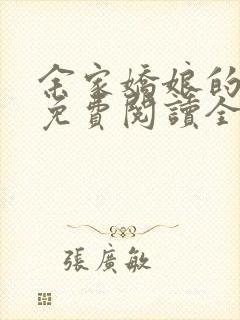 余家嬌娘的
免費閱讀全
張廣敏